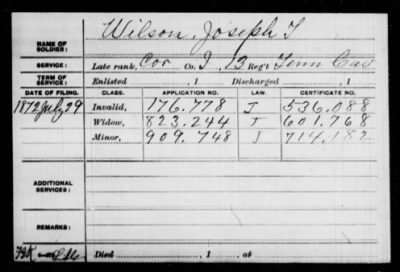 Wilson, Joseph T
NAME OF SOLDIER:
SERVICE: Late rank, Cor Co. I, 3 Reg't Tenn Cav
TERM OF SERVICE: Enlisted , 1 Discharged , 1
DATE OF FILING. CLASS. APPLICATION NO. LAW. CERTIFICATE NO.
1872 July 29 Invalid, 176.778 J 536.088
Widow, 823.244 J 601.768
Minor, 909.748 J 714.182
ADDITIONAL SERVICES:
REMARKS:
Died , 1 , at